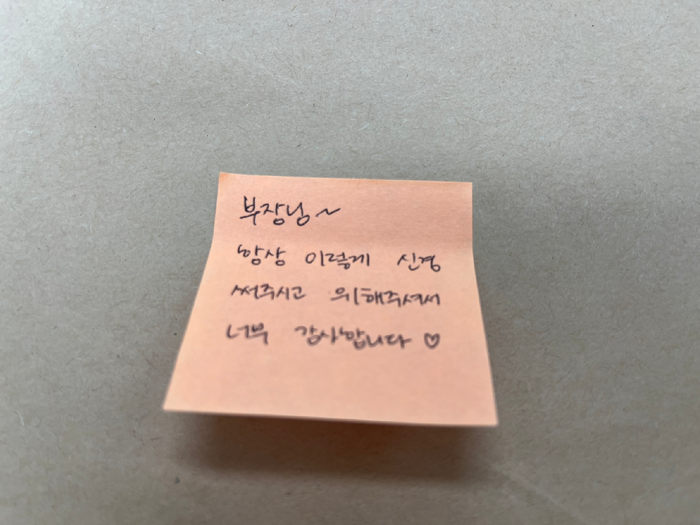 부장님~
항상 이렇게 신경
써주시고 위해주셔서
너무 감사합니다 ♡